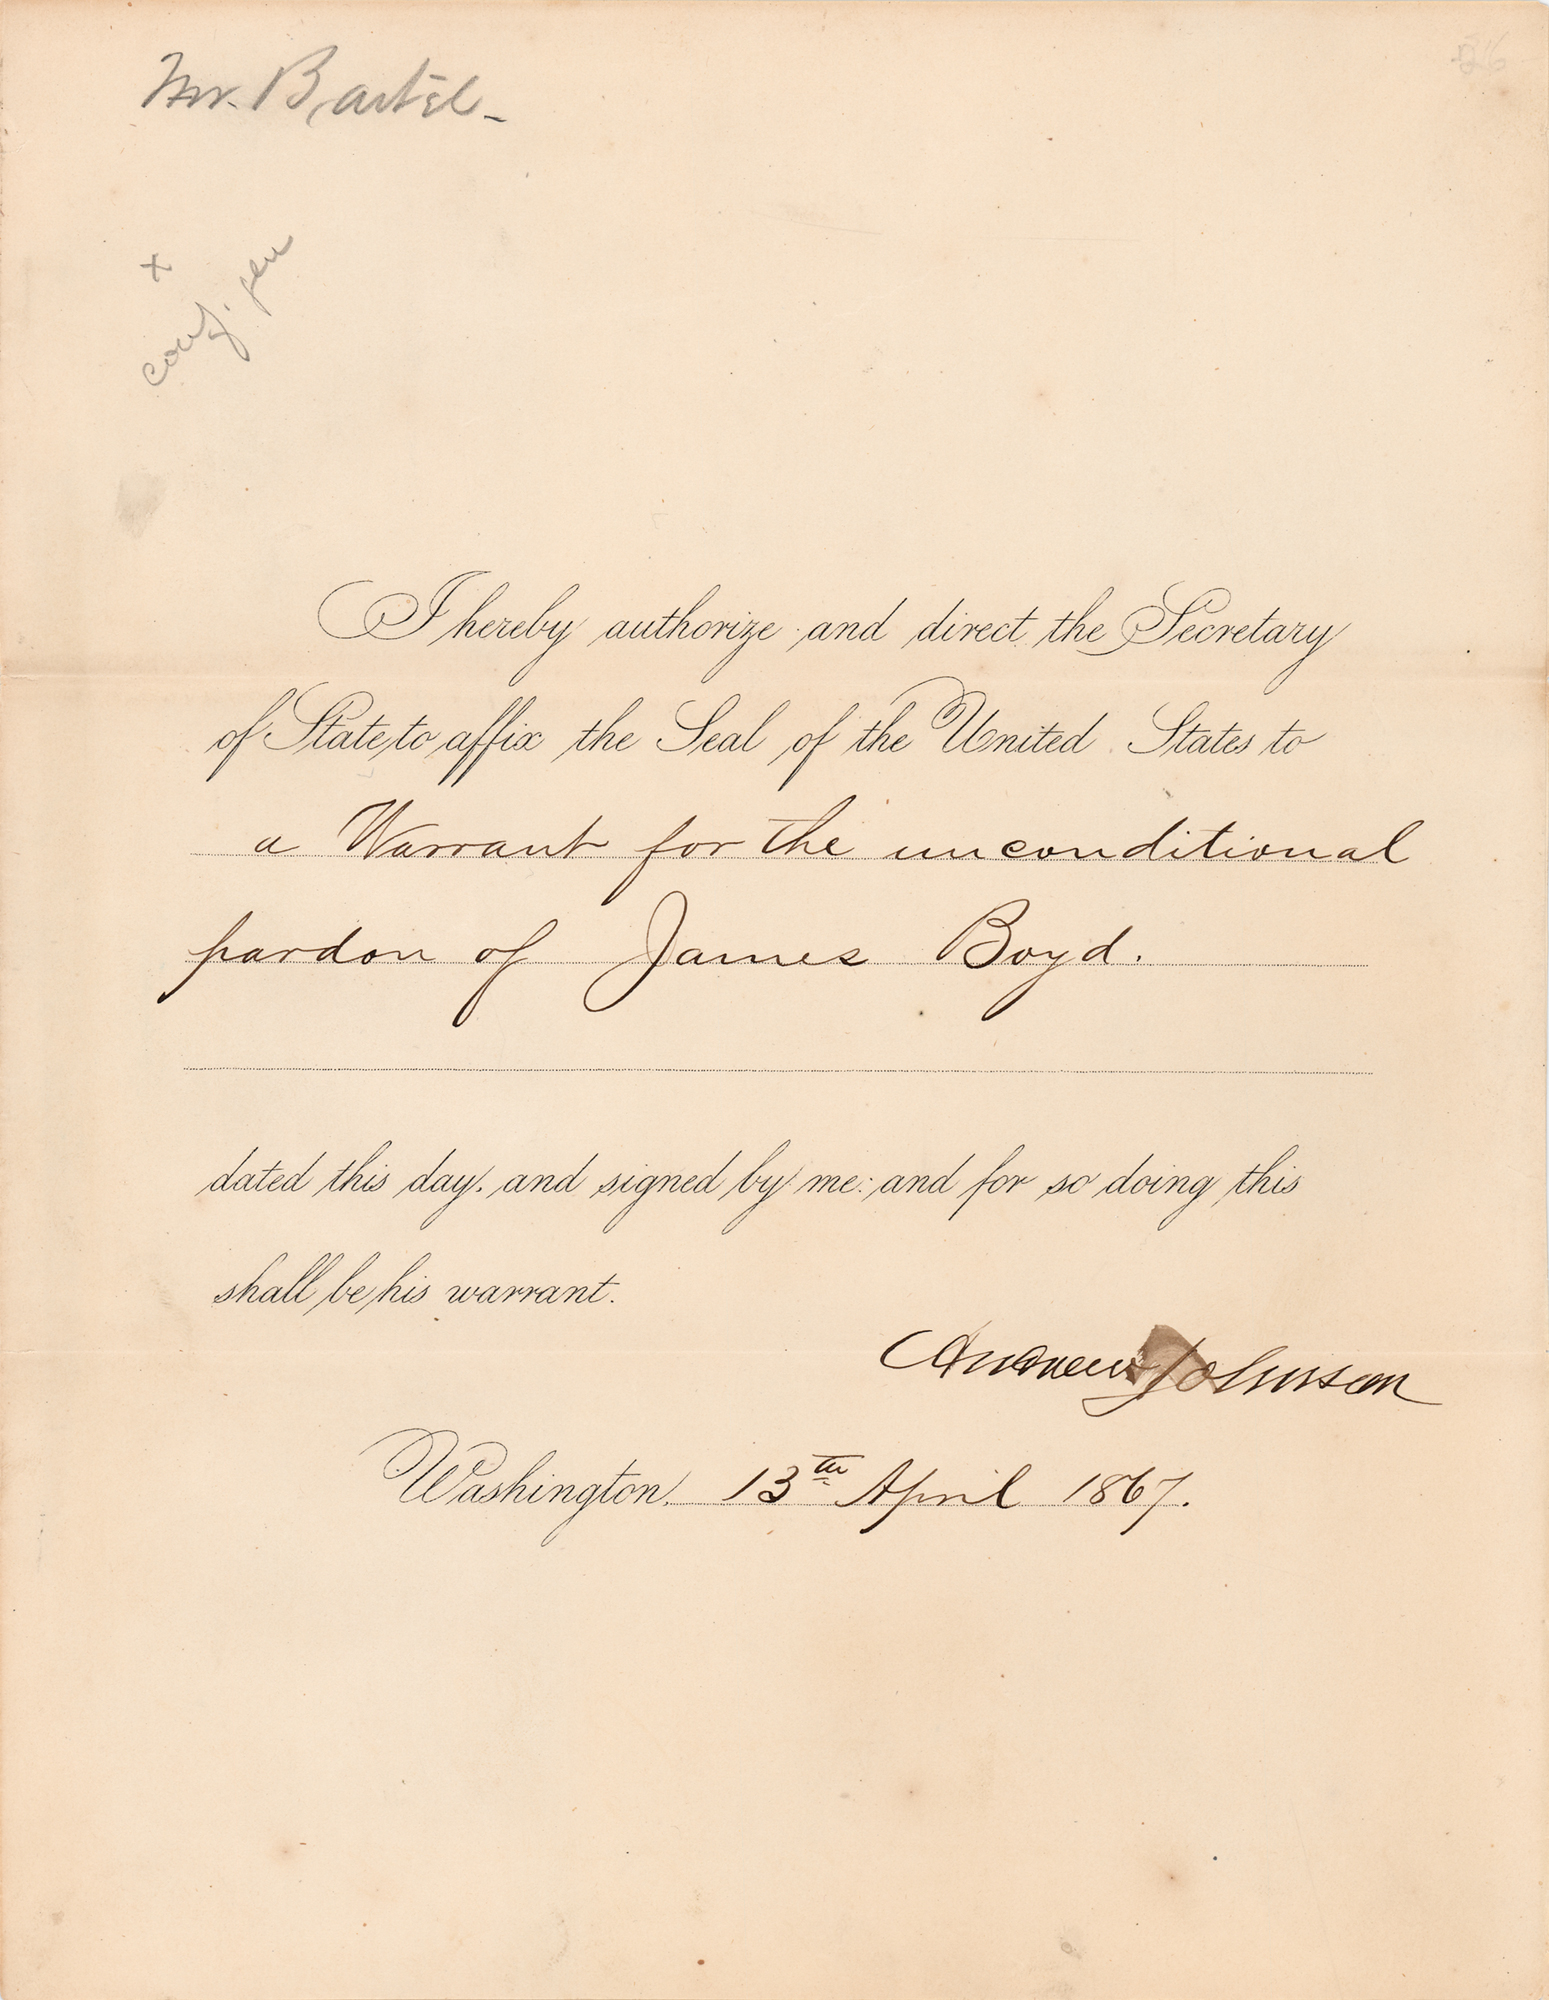 Mr. Bartel.
x
I hereby authorize and direct the Secretary
of State, to affix the Seal of the United States to
a Warrant for the unconditional
pardon of James Boyd.
dated this day, and signed by me: and for so doing this
shall be his warrant.
Andrew Johnson
Washington, 13th April 1867.